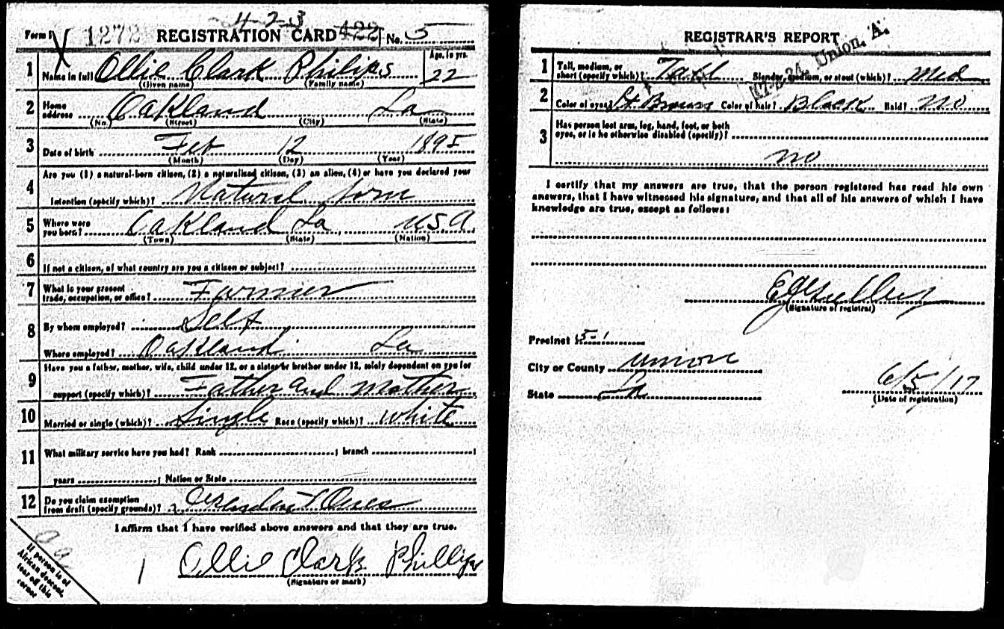 4-2-3
Form 1 1272 REGISTRATION CARD 422 No. 5
1 Name in full Ollie Clark Philips Age, in yrs. 22
(Given name) (Family name)
2 Home address Oakland La
(No.) (Street) (City) (State)
3 Date of birth Feb 12 1895
(Month) (Day) (Year)
4 Are you (1) a natural-born citizen, (2) a naturalized citizen, (3) an alien, (4) or have you declared your
intention (specify which)? Natural born
5 Where were you born? Oakland La USA
(Town) (State) (Nation)
6 If not a citizen, of what country are you a citizen or subject?
7 What is your present trade, occupation, or office? Farmer
8 By whom employed? Self
Where employed? Oakland La
9 Have you a father, mother, wife, child under 12, or a sister or brother under 12, solely dependent on you for
support (specify which)? Father and mother
10 Married or single (which)? Single Race (specify which)? White
11 What military service have you had? Rank ; branch ;
years ; Nation or State
12 Do you claim exemption from draft (specify grounds)? Dependent Ones
I affirm that I have verified above answers and that they are true.
1 Ollie Clark Phillips
(Signature or mark)
If person is of
African descent,
tear off this
corner
REGISTRAR'S REPORT
Union, A.
1 Tall, medium, or short (specify which)? Tall Slender, medium, or stout (which)? Med
2 Color of eyes? Lt Brown Color of hair? Black Bald? No
3 Has person lost arm, leg, hand, foot, or both
eyes, or is he otherwise disabled (specify)?
no
I certify that my answers are true, that the person registered has read his own
answers, that I have witnessed his signature, and that all of his answers of which I have
knowledge are true, except as follows:
(Signature of registrar)
Precinct 5-1
City or County Union
State La 6/5/17
(Date of registration)